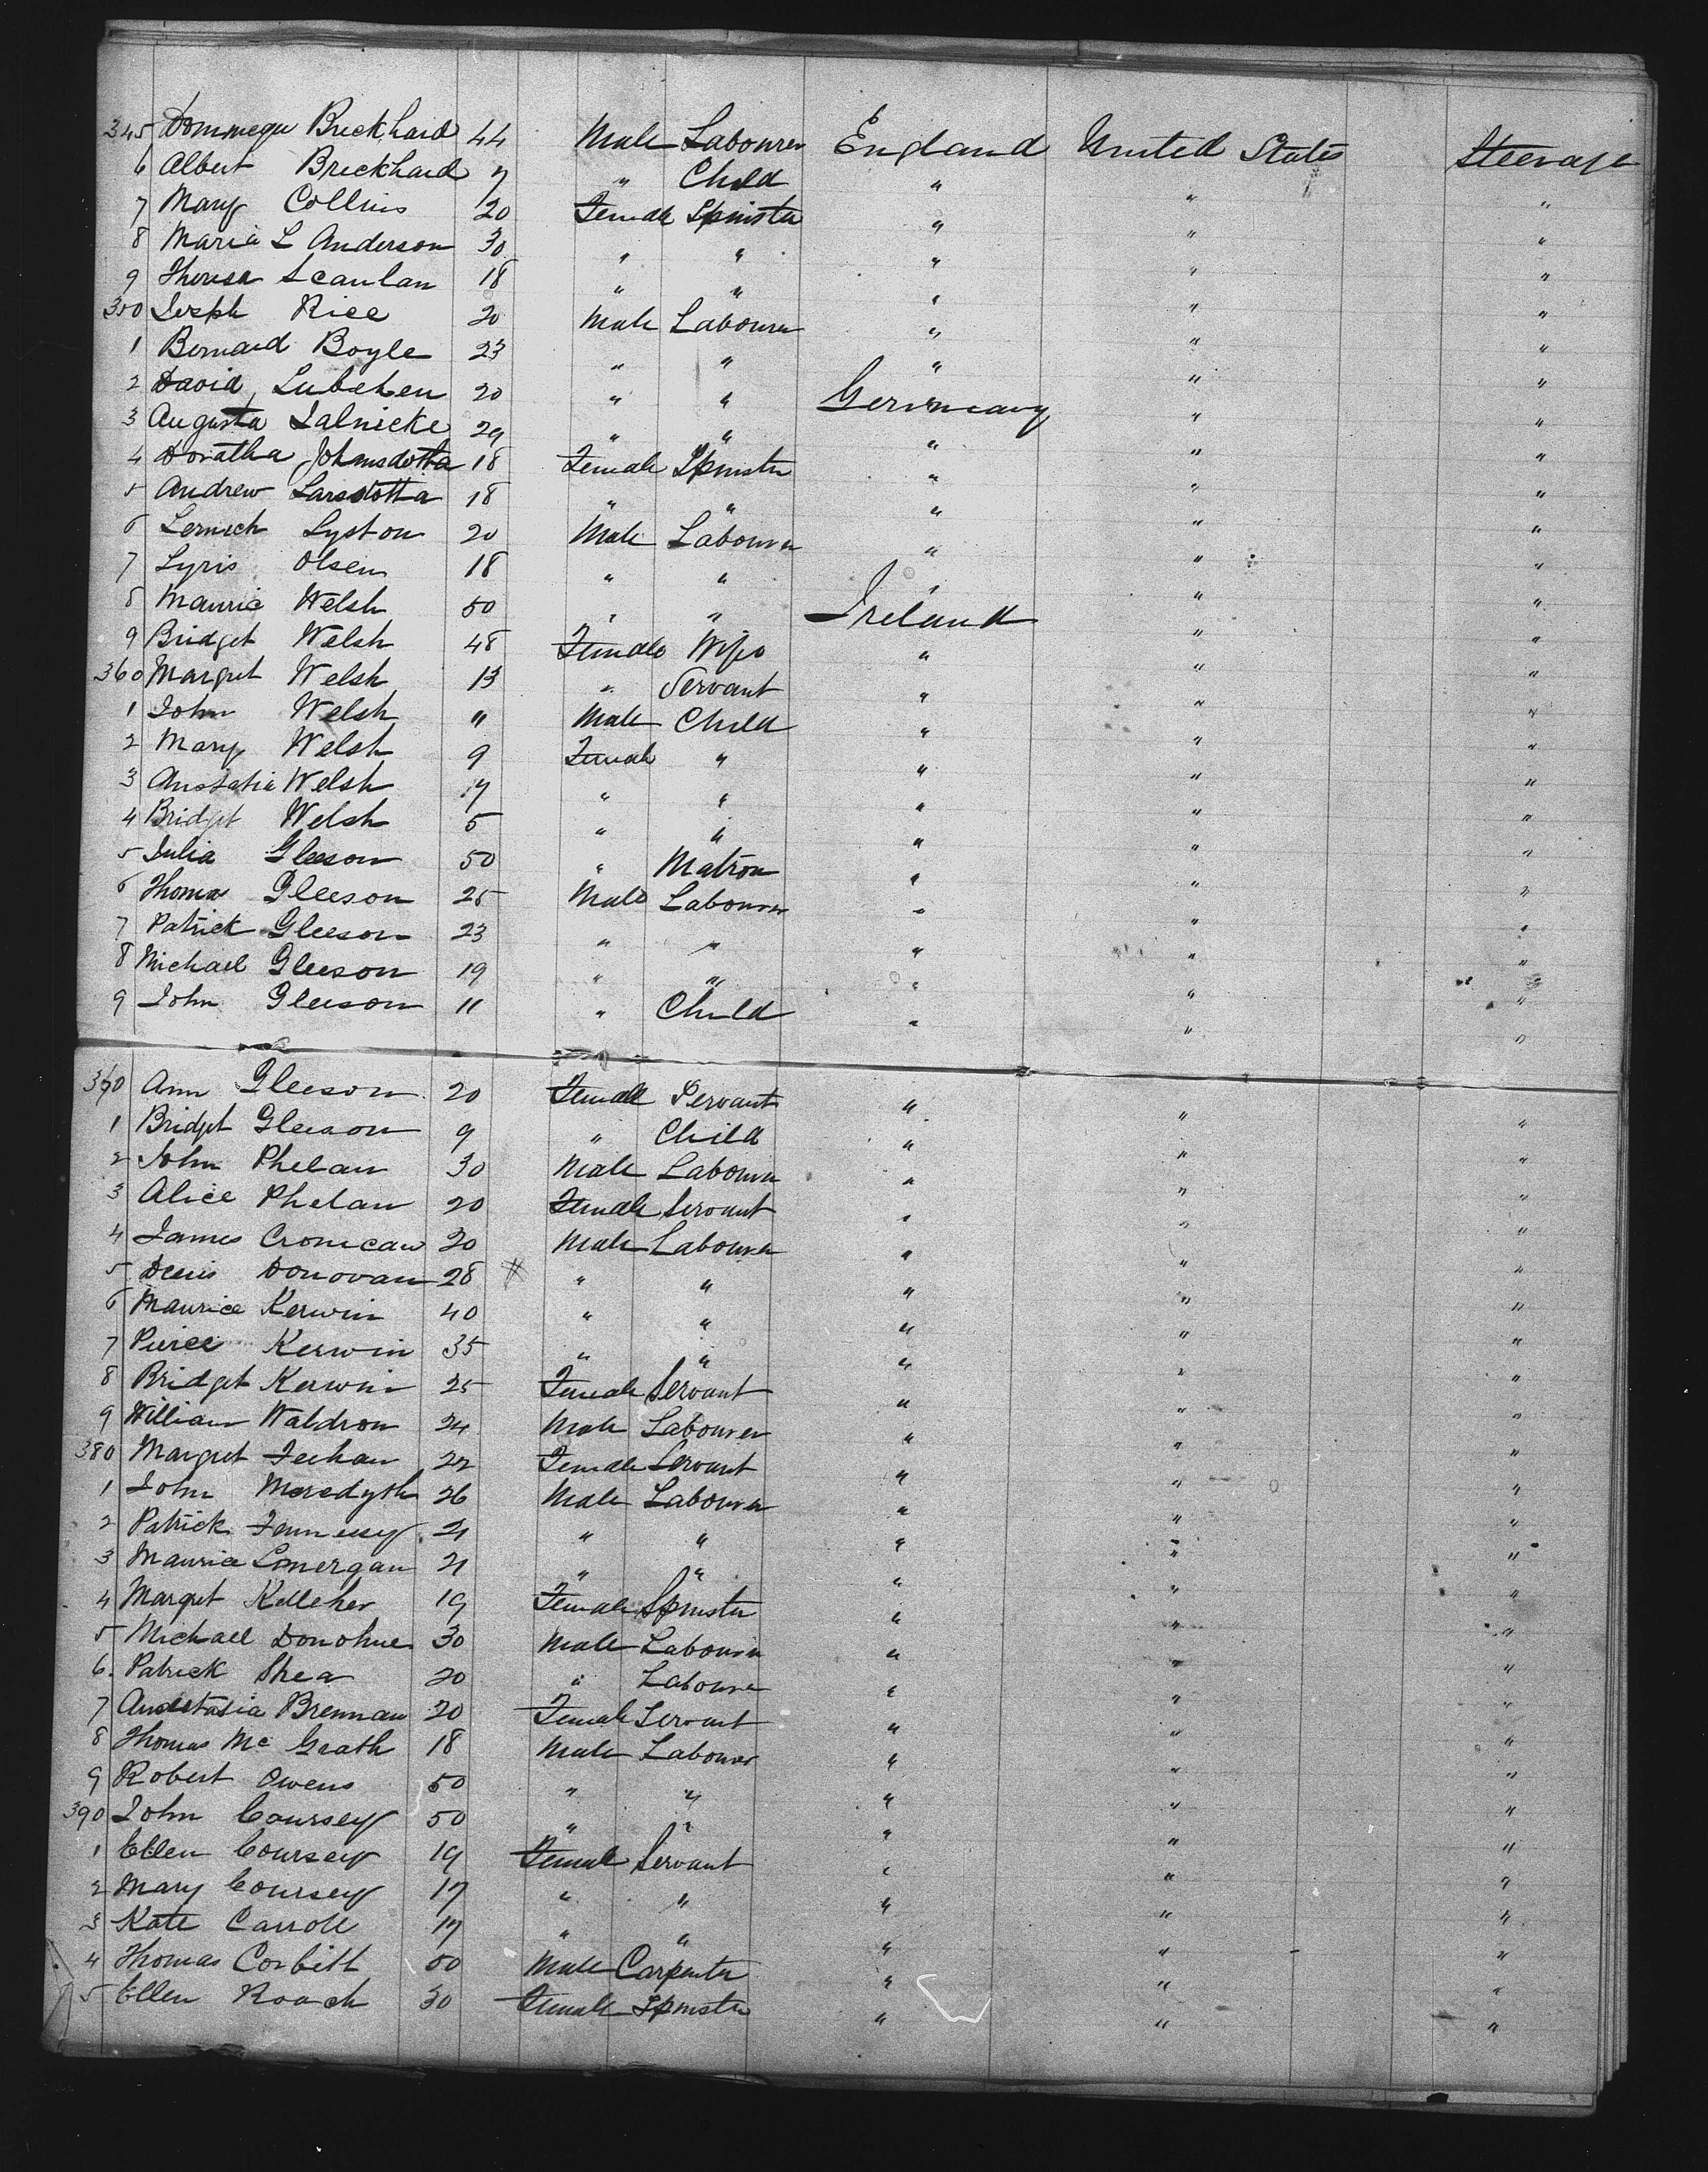 345 Dommegu Breckhard 44 Male Labourer England United States Steerage
6 Albert Breckhard 7 " Child " " "
7 Mary Collins 20 Female Spinster " " "
8 Maria L Anderson 30 " " " " "
9 Theresa Scanlan 18 " " " " "
350 Joseph Rice 20 Male Labourer " " "
1 Bernard Boyle 23 " " " " "
2 David Lubehen 20 " " Germany " "
3 Augusta Salnicke 29 " " " " "
4 Doratha Johnsdotta 18 Female Spinster " " "
5 Andrew Larsdotta 18 " " " " "
6 Lernich Lyston 20 Male Labourer " " "
7 Lyris Olsen 18 " " " " "
8 Mauric Welsh 50 " " Ireland " "
9 Bridget Welsh 48 Female Wife " " "
360 Margret Welsh 13 " Servant " " "
1 John Welsh 11 Male Child " " "
2 Mary Welsh 9 Female " " " "
3 Anastatia Welsh 7 " " " " "
4 Bridget Welsh 5 " " " " "
5 Julia Gleeson 50 " Matron " " "
6 Thomas Gleeson 25 Male Labourer " " "
7 Patrick Gleeson 23 " " " " "
8 Michael Gleeson 19 " " " " "
9 John Gleeson 11 " Child " " "
370 Ann Gleeson 20 Female Servant " " "
1 Bridget Gleeson 9 " Child " " "
2 John Phelan 30 Male Labourer " " "
3 Alice Phelan 20 Female Servant " " "
4 James Cronican 30 Male Labourer " " "
5 Denis Donovan 28 # " " " " "
6 Maurice Kerwin 40 " " " " "
7 Pierce Kerwin 35 " " " " "
8 Bridget Kerwin 25 Female Servant " " "
9 William Waldron 24 Male Labourer " " "
380 Margret Feehan 22 Female Servant " " "
1 John Meredyth 26 Male Labourer " " "
2 Patrick Fennessy 21 " " " " "
3 Maurice Lonergan 21 " " " " "
4 Margret Kelleher 19 Female Spinster " " "
5 Michael Donohue 30 Male Labourer " " "
6. Patrick Shea 20 " Labourer " " "
7 Anastasia Brennan 20 Female Servant " " "
8 Thomas Mc Grath 18 Male Labourer " " "
9 Robert Owens 50 " " " " "
390 John Coursey 50 " " " " "
1 Ellen Coursey 19 Female Servant " " "
2 Mary Coursey 17 " " " " "
3 Kate Carroll 17 " " " " "
4 Thomas Corbitt 50 Male Carpenter " " "
5 Ellen Roach 30 Female Spinster " " "